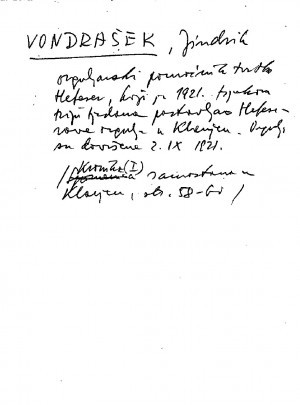 VONDRAŠEK, Jindrik
orguljarski pomoćnik tvrtke
Heferer, koji je 1921. tijekom
triju tjedana postavljao Hefere-
rove orgulje u Klanjcu. Orgulje
su dovršene 2. IX 1921.
/ Kronika (I) samostana u
Klanjcu, str. 58-60 /